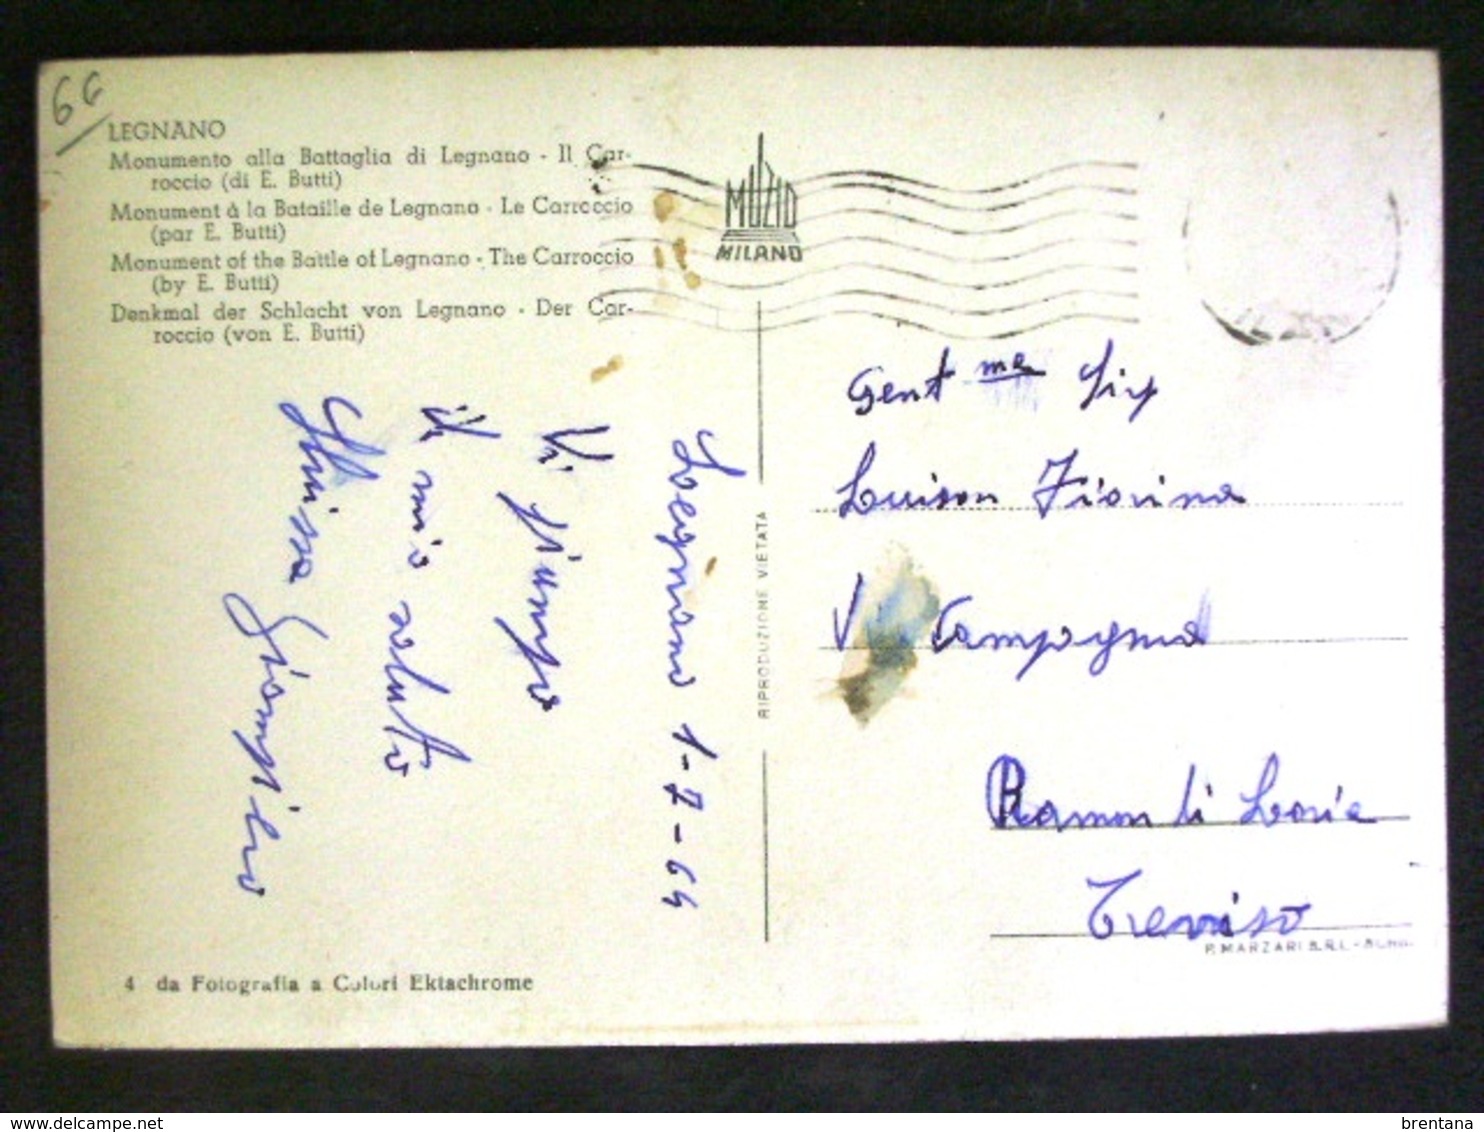 66
LEGNANO
Monumento alla Battaglia di Legnano - Il Car-
roccio (di E. Butti)
Monument à la Bataille de Legnano - Le Carroccio
(par E. Butti)
Monument of the Battle of Legnano - The Carroccio
(by E. Butti)
Denkmal der Schlacht von Legnano - Der Car-
roccio (von E. Butti)
MUZIO
MILANO
Legnano 1-7-64
Vi giunga
il mio saluto
Giampiero
4 da Fotografia a Colori Ektachrome
RIPRODUZIONE VIETATA
Gent ma Sig
Luison Fiorina
V Campagna
Ramon di Loria
Treviso
P. MARZARI S.R.L. - SCHIO
brentana